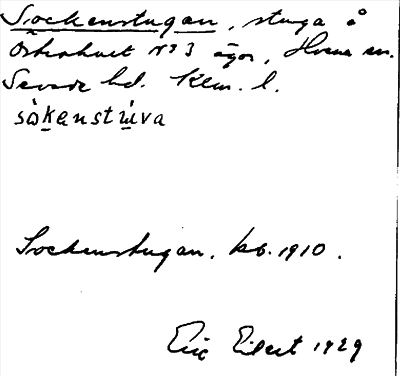 Sockenstugan, stuga å
Österhult Nº 3 ägor, Hvena sn.
Sevede hd. Klm. l.
sòkenstùva
Sockenstugan. kb. 1910.
Eric Elgert 1929